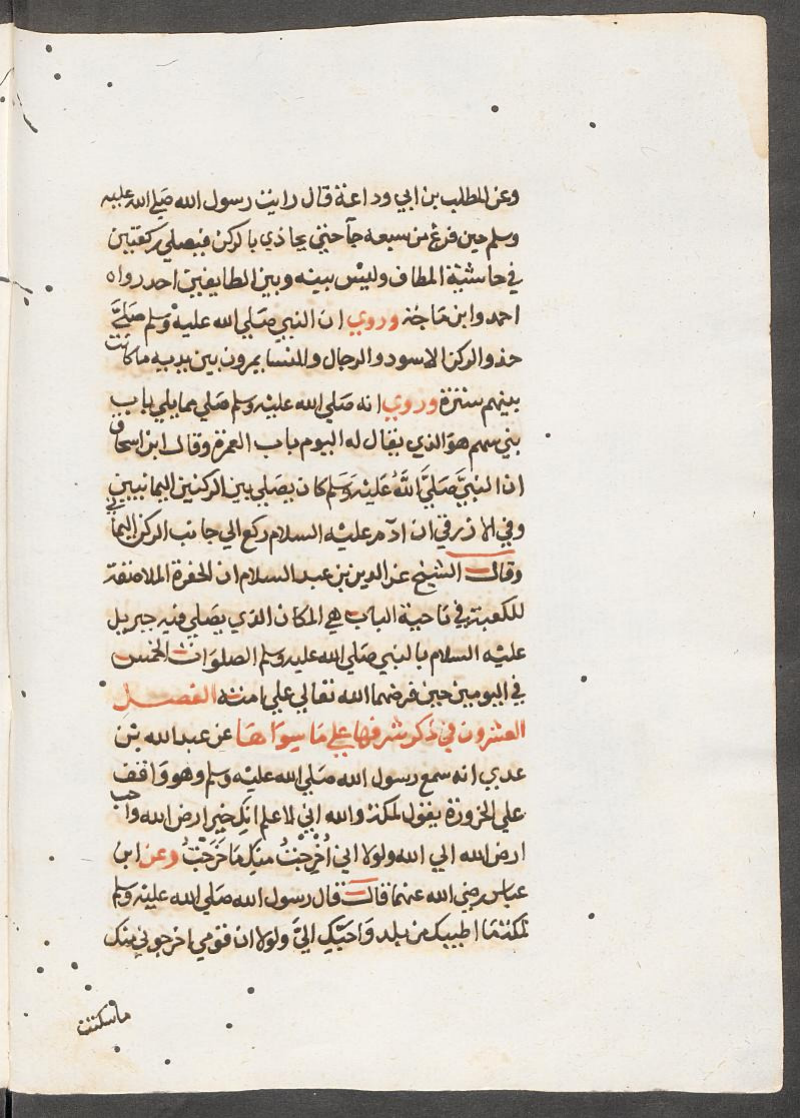 وعن المطلب بن ابي وداعة قال رايت رسول الله صلي الله عليه
وسلم حين فرغ من سبعه جآ حتي يحاذي بالركن فيصلي ركعتين
في حاشية المطاف وليس بينه وبين الطايفين احد رواه
احمد وابن ماجه وروي ان النبي صَلي الله عليه وسلم صَلَّيَ
حذو الركن الاسود والرجال والنسا يمرون بين يديه ما كانت
بينهم سترة وروي انه صَلي الله عليه وسلم صَلي مما يلي باب
بني سهم هوَ الذي يقال له اليوم باب العمرة وقال ابن اسحاق
ان النبيَّ صَلَيَّ اللَّهُ عَلَيْه وَسَلَم كان يصَلي بين الركنين اليمانيين
وفي الازرقي ان ادَم عليه السلام ركع الي جانب الركن اليماني
وقال الشيخ عز الدين بن عبد السلام ان الحفرة الملاصقة
للكعبة في ناحية الباب هي المكان الذي يصَلي فيه جبريل
عليه السلام بالنبي صَلي الله عليه وسلم الصلوَات الخمس
في اليومين حين فرضها الله تعالي علي امته الفصل
العشرون في ذكر شرفها علي مَا سِوَاهَا عن عبد الله بن
عدي انه سمع رسول الله صَلي الله عليه وسلم وهو وَاقف
علي الحزورة يقول لمكة والله اني لاعلم انكِ خير ارض الله واحب
ارض الله الي الله ولولا اني أُخْرِجْتُ منكِ مَا خَرَجْتُ وعن ابن
عباس رضي الله عنهما قال قال رسول الله صَلي الله عليه وسلم
لمكة مَا اطيبك من بلد وَاحبَّكِ اليَّ ولولا ان قومي اخرجوني منك
ما سكنت